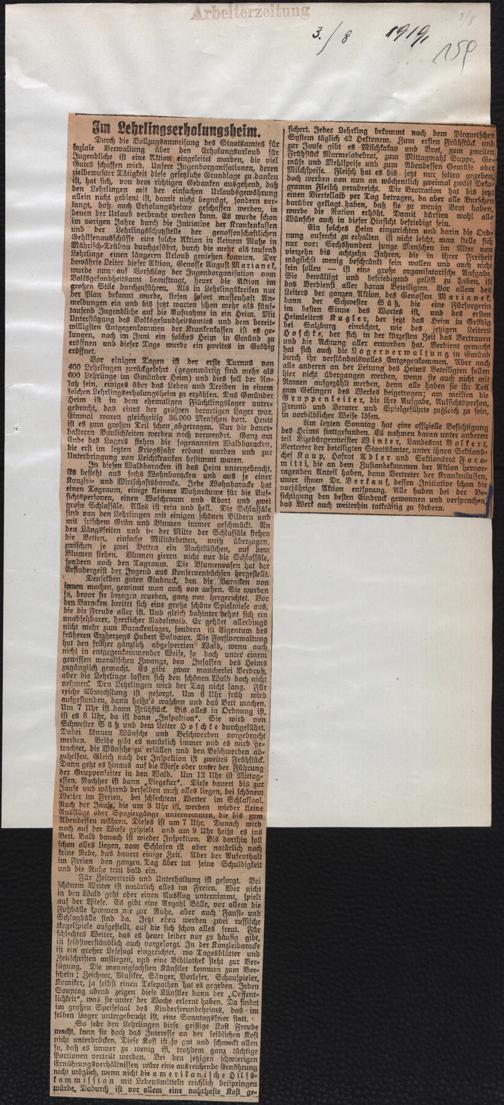 Arbeiterzeitung
3./8 1919.
159
Im Lehrlingserholungsheim.
Durch die Vollzugsanweisung des Staatsamtes für
soziale Verwaltung über den Erholungsurlaub für
Jugendliche ist eine Aktion eingeleitet worden, die viel
Gutes schaffen wird. Unsere Jugendorganisationen, deren
zielbewußter Tätigkeit diese gesetzliche Grundlage zu danken
ist, hat sich, von dem richtigen Gedanken ausgehend, daß
den Lehrlingen mit der einfachen Urlaubsgewährung
allein nicht gedient ist, damit nicht begnügt, sondern ver-
langt, daß auch Erholungsheime geschaffen werden, in
denen der Urlaub verbracht werden kann. Es wurde schon
im vorigen Jahre durch die Initiative der Krankenkassen
und der Lehrlingsschutzstelle der genossenschaftlichen
Gehilfenausschüsse eine solche Aktion in kleinem Maße in
Mährisch-Trübau durchgeführt, durch die mehr als tausend
Lehrlinge einen längeren Urlaub genießen konnten. Der
bewährte Leiter dieser Aktion, Genosse August Marianek,
wurde nun auf Vorschlag der Jugendorganisation vom
Volksgesundheitsamt beauftragt, heuer die Aktion im
großen Stile durchzuführen. Als in Lehrlingskreisen nur
der Plan bekannt wurde, liefen sofort massenhaft An-
meldungen ein und bis jetzt waren schon mehr als fünf-
tausend Jugendliche auf die Aufnahme in ein Heim. Mit
Unterstützung des Volksgesundheitsamtes und dem bereit-
willigsten Entgegenkommen der Krankenkassen ist es ge-
lungen, noch im Juni ein solches Heim in Gmünd zu
eröffnen und dieser Tage wurde ein zweites in Grödig
eröffnet.
Vor einigen Tagen ist der erste Turnus von
400 Lehrlingen zurückgekehrt (gegenwärtig sind mehr als
600 Lehrlinge im Gmündner Heim) und dies soll der An-
laß sein, einiges über das Leben und Treiben in einem
solchen Lehrlingserholungsheim zu erzählen. Das Gmünder
Heim ist in dem ehemaligen Flüchtlingslager unter-
gebracht, das eines der größten derartigen Lager war.
Einmal waren gleichzeitig 36.000 Menschen dort. Heute
ist es zum großen Teil schon abgetragen. Nur die dauer-
hafteren Baulichkeiten werden noch verwendet. Ganz am
Ende des Lagers stehen die sogenannten Waldbaracken,
die erst im letzten Kriegsjahr erbaut wurden und zur
Unterbringung von Leichtkranken bestimmt waren.
In diesen Waldbaracken ist das Heim untergebracht.
Es besteht aus sechs Wohnbaracken und aus je einer
Kanzlei- und Wirtschaftsbaracke. Jede Wohnbaracke hat
einen Tagraum, einige kleinere Wohnräume für die Auf-
sichtspersonen, einen Waschraum und Abort und zwei
große Schlafsäle. Alles ist rein und hell. Die Schlafsäle
sind von den Lehrlingen mit einigen schönen Bildern und
mit frischem Grün und Blumen immer geschmückt. An
den Längsseiten und in der Mitte der Schlafsäle stehen
die Betten, einfache Militärbetten, weiß überzogen,
zwischen je zwei Betten ein Nachtkästchen, auf dem
Blumen stehen. Blumen zieren nicht nur die Schlafsäle,
sondern auch den Tagraum. Die Blumenvasen hat der
Erfindergeist der Jugend aus Konservenbüchsen hergestellt.
Denselben guten Eindruck, den die Baracken von
innen machen, gewinnt man auch von außen. Sie wurden
ja, bevor sie bezogen wurden, ganz neu hergerichtet. Vor
den Baracken breitet sich eine große schöne Spielwiese aus,
die die Freude aller ist. Und gleich dahinter dehnt sich ein
unabsehbarer, herrlicher Nadelwald. Er gehört allerdings
nicht mehr zum Barackenlager, sondern ist Eigentum des
früheren Erzherzogs Hubert Salvator. Die Forstverwaltung
hat den früher gänzlich abgesperrten Wald, wenn auch
nicht in entgegenkommender Weise, so doch unter einem
gewissen moralischen Zwange, den Insassen des Heims
zugänglich gemacht. Es gibt zwar mancherlei Verdruß,
aber die Lehrlinge lassen sich den schönen Wald doch nicht
nehmen. Den Lehrlingen wird der Tag nicht lang. Für
reiche Abwechslung ist gesorgt. Um 6 Uhr früh wird
aufgestanden, dann heißt's waschen und das Bett machen.
Um 7 Uhr ist dann Frühstück. Bis alles in Ordnung ist,
ist es 8 Uhr, da ist dann „Inspektion". Sie wird von
Schwester Süß und dem Leiter Hoschke durchgeführt.
Dabei können Wünsche und Beschwerden vorgebracht
werden. Beide gibt es natürlich immer und es wird ge-
trachtet, die Wünsche zu erfüllen und den Beschwerden ab-
zuhelfen. Gleich nach der Inspektion ist zweites Frühstück.
Dann geht es hinaus auf die Wiese oder unter der Führung
der Gruppenleiter in den Wald. Um 12 Uhr ist Mittag-
essen. Nachher ist dann „Liegekur". Diese dauert bis zur
Jause und während derselben muß alles liegen, bei schönem
Wetter im Freien, bei schlechtem Wetter im Schlafsaal.
Nach der Jause, die um 3 Uhr ist, werden wieder kleine
Ausflüge oder Spaziergänge unternommen, die bis zum
Abendessen währen. Dieses ist um 7 Uhr. Danach wird
noch auf der Wiese gespielt und um 9 Uhr heißt es ins
Bett. Bald danach ist wieder Inspektion. Bis dorthin soll
schon alles liegen, vom Schlafen ist aber natürlich noch
keine Rede, das dauert einige Zeit. Aber der Aufenthalt
im Freien den ganzen Tag über tut seine Schuldigkeit
und die Ruhe tritt bald ein.
Für Zeitvertreib und Unterhaltung ist gesorgt. Bei
schönem Wetter ist natürlich alles im Freien. Wer nicht
in den Wald geht oder einen Ausflug unternimmt, spielt
auf der Wiese. Es gibt eine Anzahl Bälle, vor allem die
Fußbälle kommen nie zur Ruhe, aber auch Faust- und
Schlagbälle sind da. Jetzt eben werden zwei russische
Kegelspiele aufgestellt, auf die sich schon alles freut. Für
schlechtes Wetter, das es heuer leider nur zu häufig gibt,
ist selbstverständlich auch vorgesorgt. In der Kanzleibaracke
ist ein großer Lesesaal eingerichtet, wo Tagesblätter und
Zeitschriften aufliegen, und eine Bibliothek steht zur Ver-
fügung. Die mannigfachsten Künstler kommen zum Vor-
schein: Zeichner, Musiker, Sänger, Vorleser, Schauspieler,
Komiker, ja selbst einen Telepathen hat es gegeben. Jeden
Sonntag abend zeigen diese Künstler dann der „Oeffent-
lichkeit", was sie unter der Woche erlernt haben. Da findet
im großen Speisesaal des Kinderfreundeheims, das im
selben Lager untergebracht ist, eine Sonntagsfeier statt.
So sehr den Lehrlingen diese geistige Kost Freude
macht, kann sie doch das Interesse an der leiblichen Kost
nicht unterdrücken. Diese Kost ist so gut und schmeckt allen
so, daß es immer zu wenig ist, trotzdem ganz tüchtige
Portionen verteilt werden. Bei den jetzigen schwierigen
Ernährungsverhältnissen wäre eine ausreichende Ernährung
nicht möglich, wenn nicht die amerikanische Hilfs-
kommission mit Lebensmitteln reichlich beispringen
würde. Dadurch ist vor allem eine nahrhafte Kost ge-
sichert. Jeder Lehrling bekommt nach dem Pirquetschen
System täglich 42 Hektonem. Zum ersten Frühstück und
zur Jause gibt es Milchkakao und Brot, zum zweiten
Frühstück Marmeladebrot, zum Mittagmahl Suppe, Ge-
müse und Mehlspeis und zum Abendessen Gemüse oder
Milchspeise. Fleisch hat es bis jetzt nur selten gegeben,
doch werden von nun an wöchentlich zweimal zwölf Deka-
gramm Fleisch verabreicht. Die Brotration hat bis jetzt
einen Viertellaib per Tag betragen, da aber alle Burschen
darüber geklagt haben, daß sie zu wenig Brot haben,
wurde die Ration erhöht. Damit dürften wohl alle
Wünsche auch in dieser Hinsicht befriedigt sein.
Ein solches Heim einzurichten und darin die Ord-
nung aufrecht zu erhalten ist nicht leicht, man stelle sich
nur vor: Sechshundert junge Menschen im Alter von
vierzehn bis achtzehn Jahren, die in ihrer Freiheit
möglichst wenig beschränkt sein wollen und auch nicht
sein sollen — ist eine große organisatorische Aufgabe.
Sie bewältigt und befriedigend gelöst zu haben, ist
das Verdienst aller daran Beteiligten. Vor allem des
Leiters der ganzen Aktion, des Genossen Marianek,
dann der Schwester Süß, die eine Fürsorgerin
im besten Sinne des Wortes ist, und des ersten
Heimleiters Kogler, der jetzt das Heim in Grödig
bei Salzburg einrichtet, wie des jetzigen Leiters
Hoschke, der sich in der kürzesten Zeit das Vertrauen
und die Achtung aller erworben hat. Verdient gemacht
hat sich auch die Lagerverwaltung in Gmünd
durch ihr verständnisvolles Entgegenkommen. Aber auch
alle anderen an der Leitung des Heims Beteiligten sollen
hier nicht übergangen werden, wenn sie auch nicht mit
Namen aufgezählt werden, denn alle haben sie ihr Teil
zum Gelingen des Werkes beigetragen; am meisten die
Gruppenleiter, die ihre Aufgabe, Aufsichtsperson,
Freund und Berater und Spielgefährte zugleich zu sein,
in vorbildlicher Weise lösen.
Am letzten Sonntag hat eine offizielle Besichtigung
des Heims stattgefunden. An nahmen daran unter anderen
teil Vizebürgermeister Winter, Landesrat Volkert,
Vertreter der beteiligten Staatsämter, unter ihnen Sektions-
chef Kaup, Hofrat Adler und Sektionsrat Fora-
mitti, die an dem Zustandekommen der Aktion hervor-
ragenden Anteil haben, dann Vertreter der Krankenkassen,
unter ihnen Dr. Verkauf, dessen Initiative schon die
vorjährige Aktion entsprang. Alle haben bei der Be-
sichtigung den besten Eindruck gewonnen und versprochen,
das Werk auch weiterhin tatkräftig zu fördern.